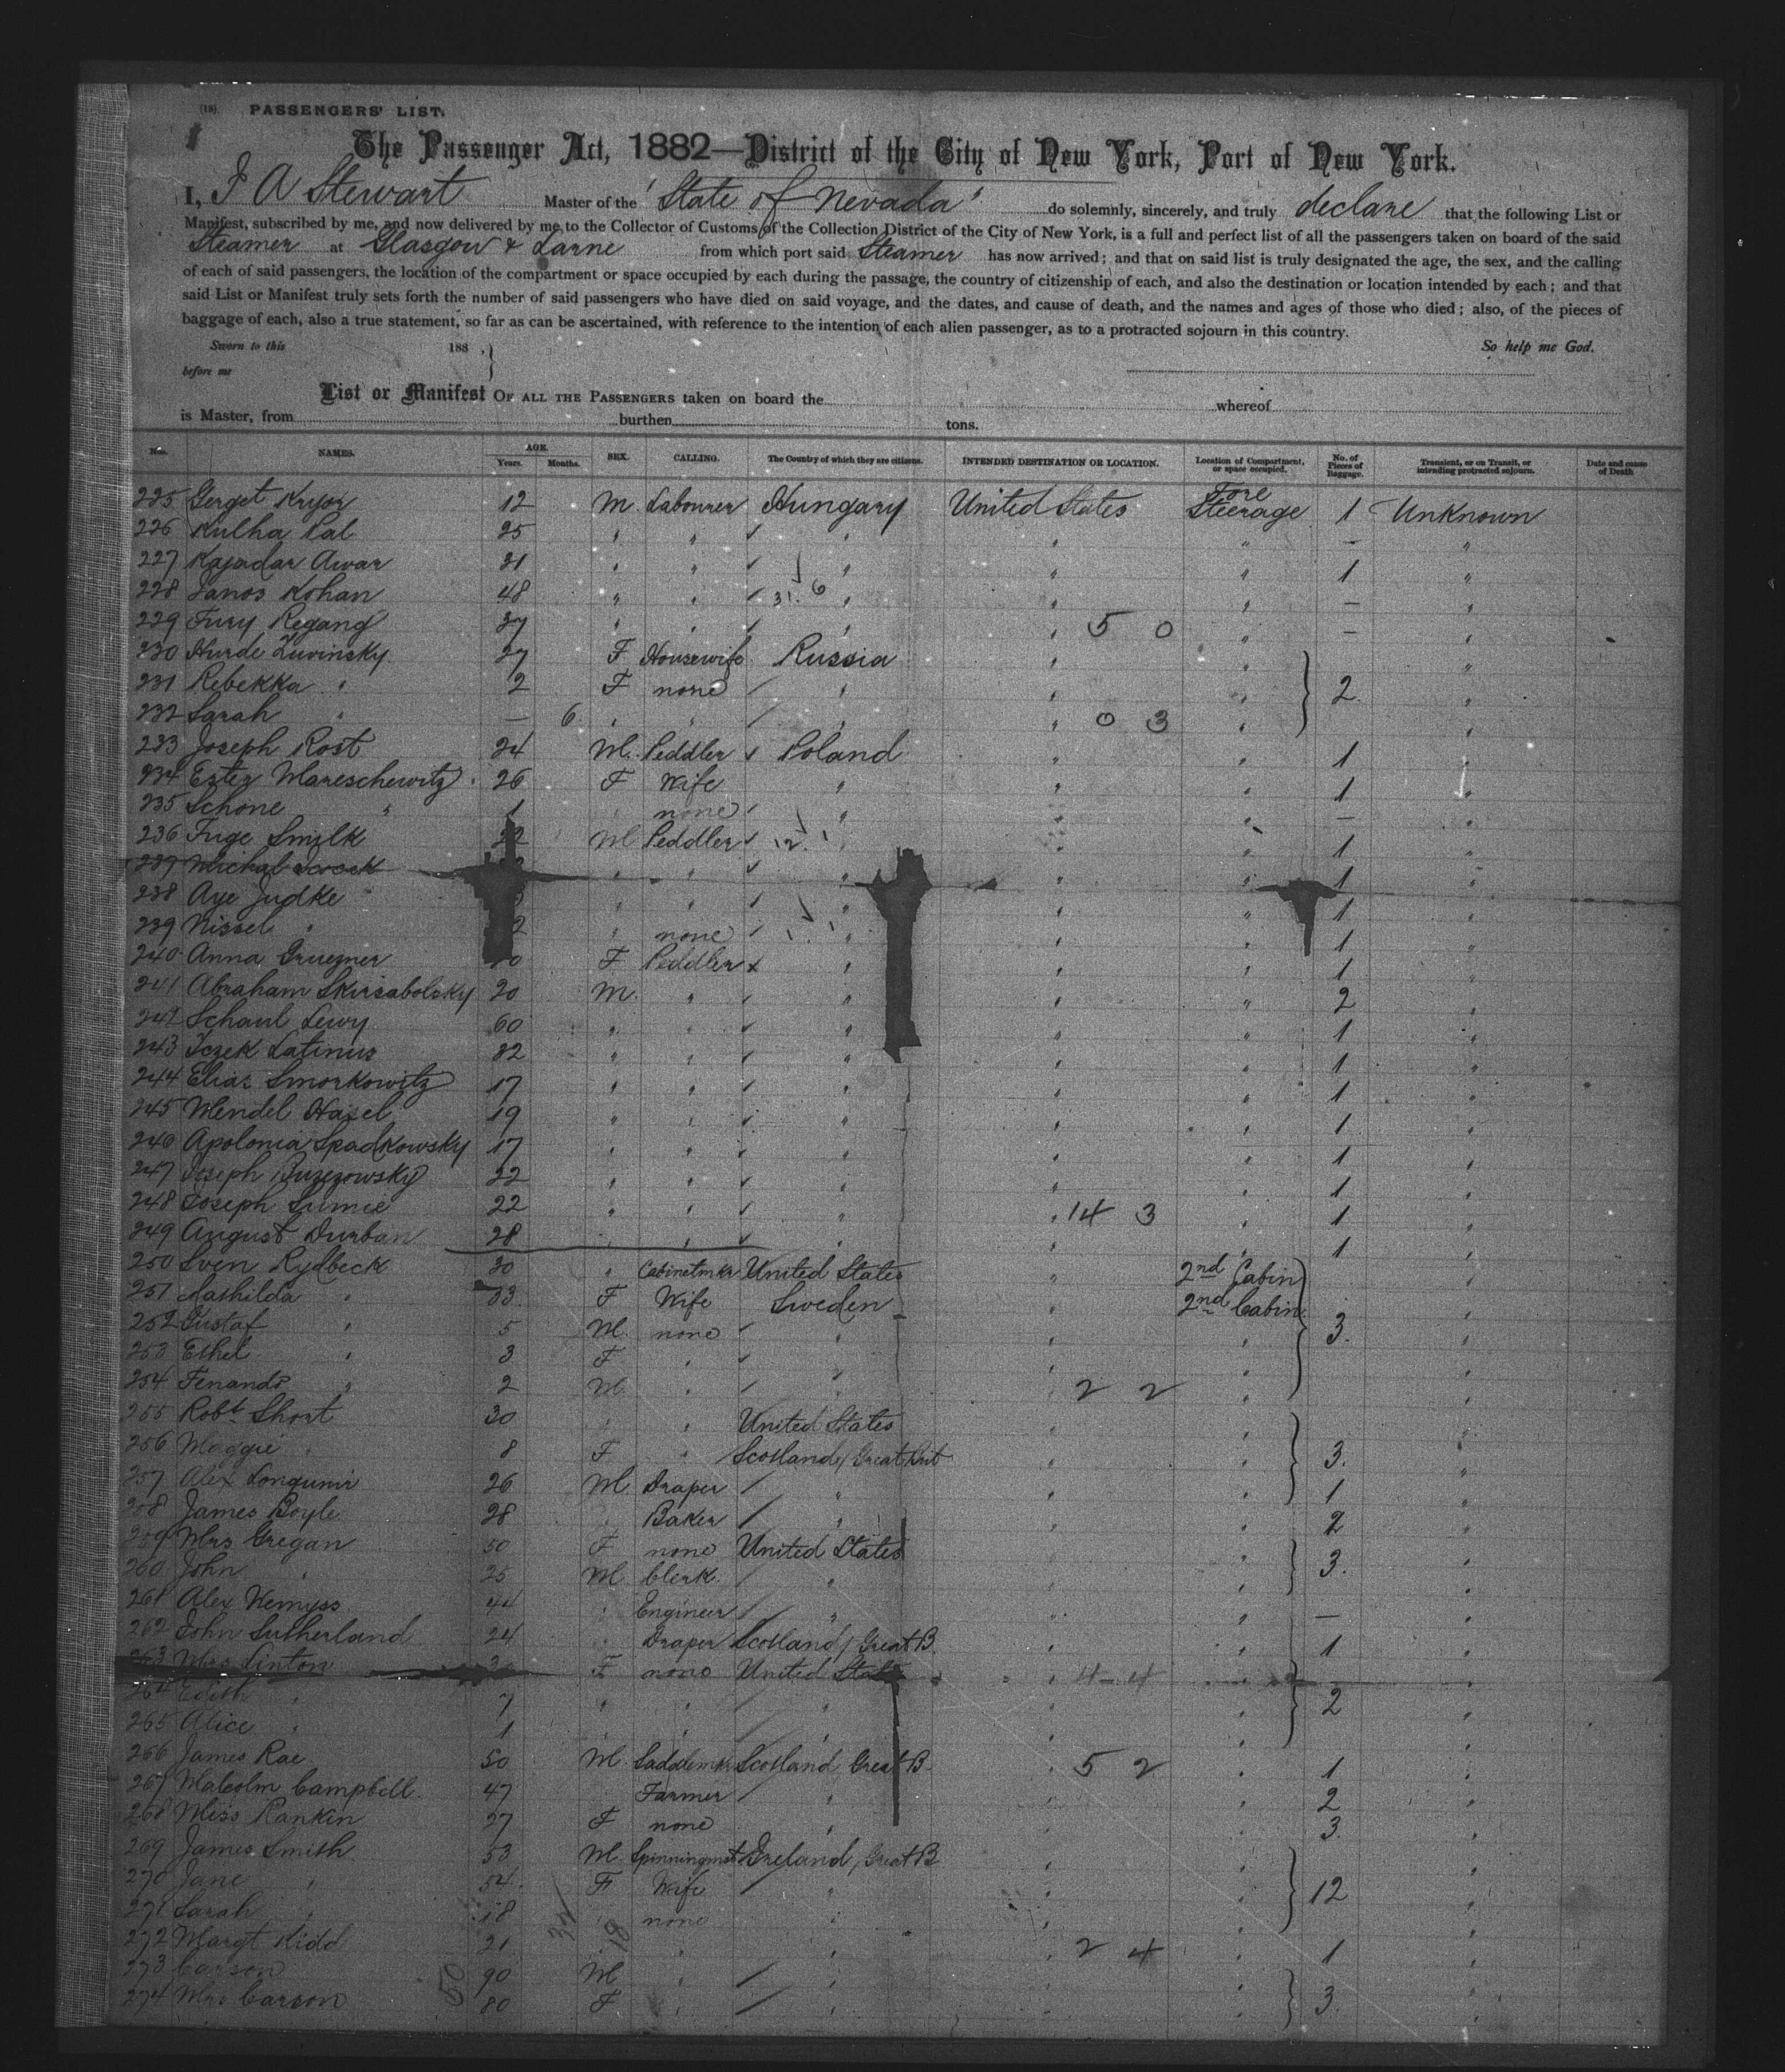 (18) PASSENGERS' LIST.
The Passenger Act, 1882—District of the City of New York, Port of New York.
I, J A Stewart Master of the "State of Nevada" do solemnly, sincerely, and truly declare that the following List or
Manifest, subscribed by me, and now delivered by me to the Collector of Customs of the Collection District of the City of New York, is a full and perfect list of all the passengers taken on board of the said
Steamer at Glasgow & Larne from which port said Steamer has now arrived; and that on said list is truly designated the age, the sex, and the calling
of each of said passengers, the location of the compartment or space occupied by each during the passage, the country of citizenship of each, and also the destination or location intended by each; and that
said List or Manifest truly sets forth the number of said passengers who have died on said voyage, and the dates, and cause of death, and the names and ages of those who died; also, of the pieces of
baggage of each, also a true statement, so far as can be ascertained, with reference to the intention of each alien passenger, as to a protracted sojourn in this country.
Sworn to this 188 , } So help me God.
before me
List or Manifest OF ALL THE PASSENGERS taken on board the whereof
is Master, from burthen tons.
Nos. NAMES. AGE. Years. Months. SEX. CALLING. The Country of which they are citizens. INTENDED DESTINATION OR LOCATION. Location of Compartment, or space occupied. No. of Pieces of Baggage. Transient, or on Transit, or intending protracted sojourn. Date and cause of Death
225 Gerget Kryor 12 M. Labourer Hungary United States Fore Steerage 1 Unknown
226 Kulha Pal 25 " " " " " — "
227 Kajadar Awar 31 " " " " " 1 "
228 Janos Kohan 48 " " 31. 6 " " " — "
229 Fury Regang 37 " " " " 5 0 " — "
230 Hurde Luvinsky 27 F Housewife Russia " " "
231 Rebekka " 2 F none " " " 2 "
232 Sarah " — 6 " " " " 0 3 " "
233 Joseph Rost 24 M. Peddler Poland " " 1 "
234 Ester Mareschewitz 26 F Wife " " " 1 "
235 Schone " 1 " none " " " — "
236 Fuge Smilk 22 M Peddler 12. 1 " " 1 "
237 Michal " " " " " 1 "
238 Aye Judke " " " " " 1 "
239 Nissel " 2 " none " " " 1 "
240 Anna Gruezner F Peddler " " " 1 "
241 Abraham Skirsabolsky 20 M. " " " " 2 "
242 Schaul Lewy 60 " " " " " 1 "
243 Iczek Latinus 32 " " " " " 1 "
244 Elias Smorkowitz 17 " " " " " 1 "
245 Mendel Hasel 19 " " " " " 1 "
246 Apolonia Spadkowsky 17 " " " " " 1 "
247 Joseph 22 " " " " " 1 "
248 Joseph Sumie 22 " " " " 14 3 " 1 "
249 August Durban 28 " " " " " 1 "
250 Sven Rydbeck 30 " Cabinetmkr United States " 2nd Cabin "
251 Mathilda " 33 F Wife Sweden " 2nd Cabin "
252 Gustaf " 5 M. none " " " 3. "
253 Ethel " 3 F " " " " "
254 Fenando " 2 M. " " " 2 2 " "
255 Robt Short 30 " " United States " " "
256 Maggie " 8 F " Scotland / Great Brit " " 3. "
257 Alex Longumir 26 M. Draper " " " 1 "
258 James Boyle 28 " Baker " " " 2 "
259 Mrs Gregan 50 F none United States " " 3. "
260 John " 25 M. Clerk " " " "
261 Alex Wemyss 44 " Engineer " " " — "
262 John Sutherland 24 " Draper Scotland / Great B. " " 1 "
263 Mrs Linton F none United States " 4 - 4 " "
264 Edith " 7 " " " " " 2 "
265 Alice " 1 " " " " " "
266 James Rae 50 M. Saddlemkr Scotland Great B. " 5 2 " 1 "
267 Malcolm Campbell 47 Farmer " " " 2 "
268 Miss Rankin 27 F none " " " 3. "
269 James Smith 53 M. Spinningmstr Ireland / Great B " " "
270 Jane " 54. F Wife " " " 12 "
271 Sarah " 18 " none " " " "
272 Margt Kidd 21 " " " " 2 4 " 1 "
273 Carson 90 M " " " " "
274 Mrs Carson 80 F " " " " 3. "